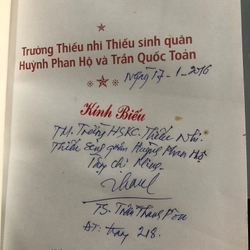 Trường Thiếu nhi Thiếu sinh quân
Huỳnh Phan Hộ và Trần Quốc Toản
Ngày 17-1-2016
Kính Biếu
TM. Trường HSKC. Thiếu Nhi
Thiếu sinh quân Huỳnh Phan Hộ
Tặng chị
TS. Trần Thanh
ĐT: trang 218.